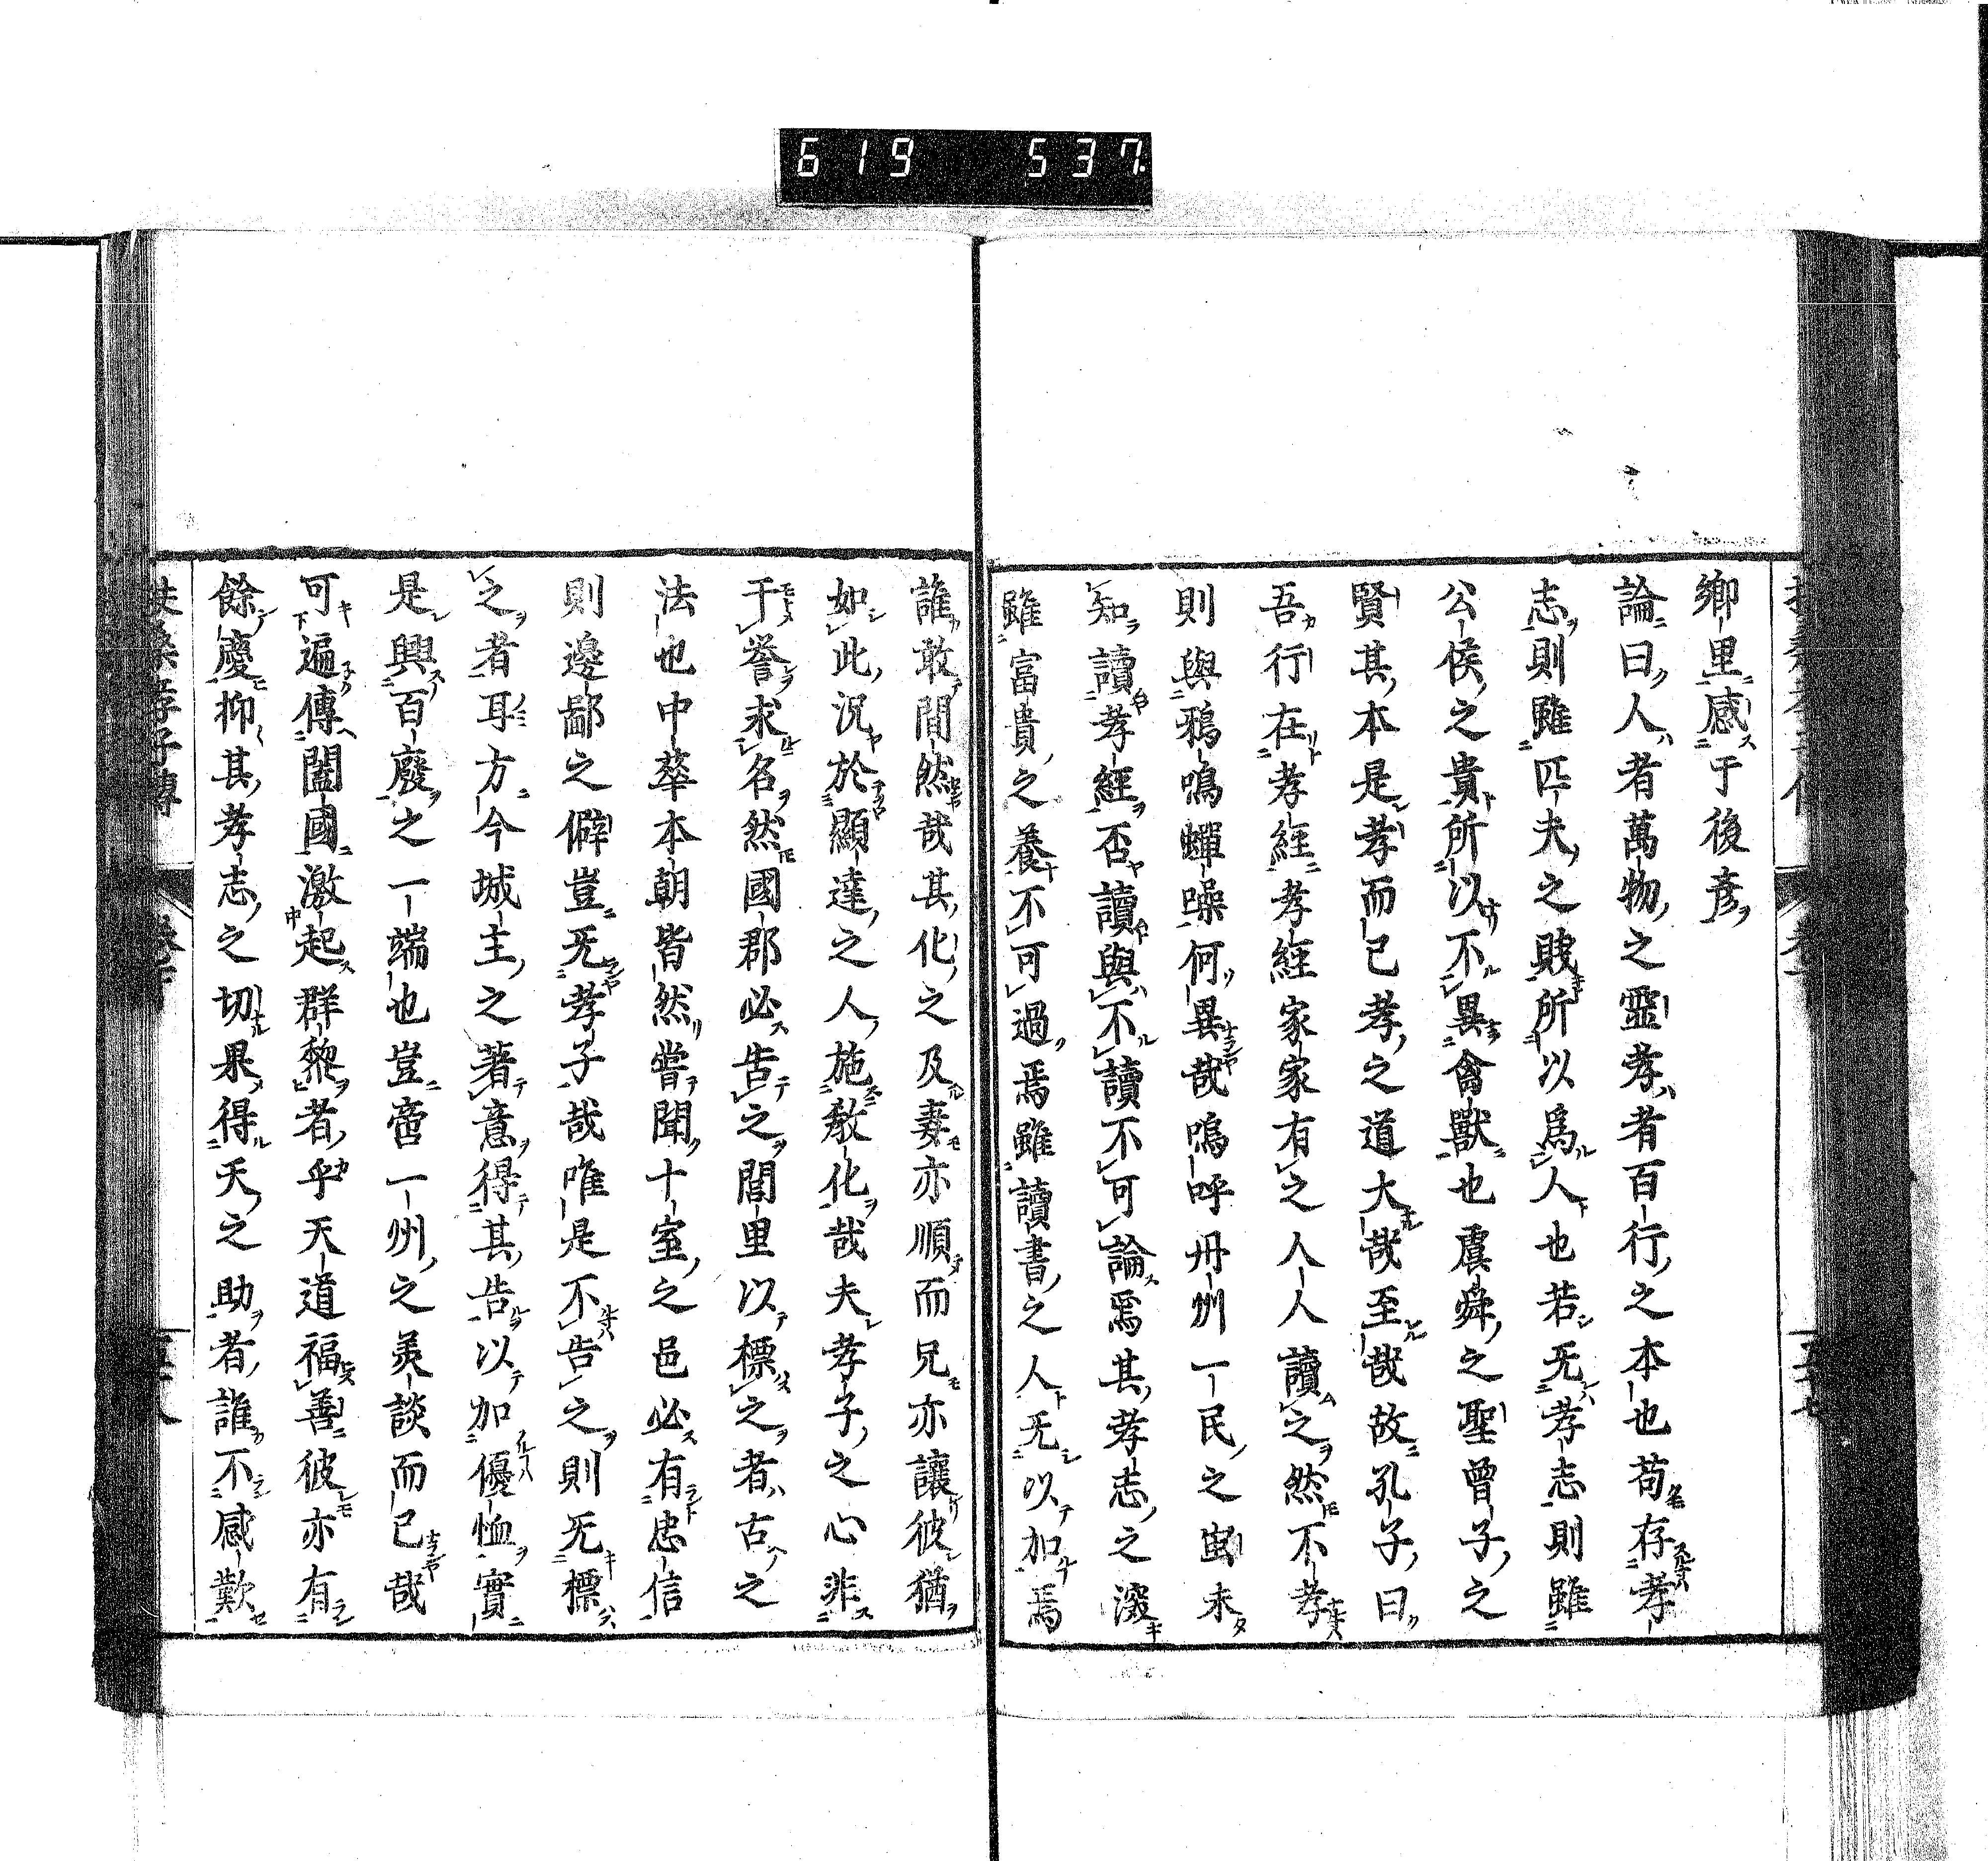 619 537
鄉里感于後彦
論曰人者萬物之靈孝者百行之本也苟存孝
志則雖匹夫之賤所以爲人也若旡孝志則雖
公侯之貴所以不異禽獸也虞舜之聖曾子之
賢其本是孝而已孝之道大哉至哉故孔子曰
吾行在孝經孝經家家有之人人讀之然不孝
則與鴉鳴蟬噪何異哉嗚呼丹州一民之蚩未
知讀孝經否讀與不讀不可論焉其孝志之深
雖富貴之養不可過焉雖讀書之人旡以加焉
誰敢間然哉其化之及妻亦順而兄亦讓彼猶
如此況於顯達之人施敎化哉夫孝子之心非
于譽求名然國郡必告之閭里以標之者古之
法也中華本朝皆然嘗聞十室之邑必有忠信
則邊鄙之僻豈旡孝子哉唯是不告之則旡標
之者耳方今城主之著意得其告以加優恤實
是興百廢之一端也豈啻一州之美談而已哉
可遍傳闔國激起群黎者乎天道福善彼亦有
餘慶抑其孝志之切果得天之助者誰不感歎
扶桑孝子傳